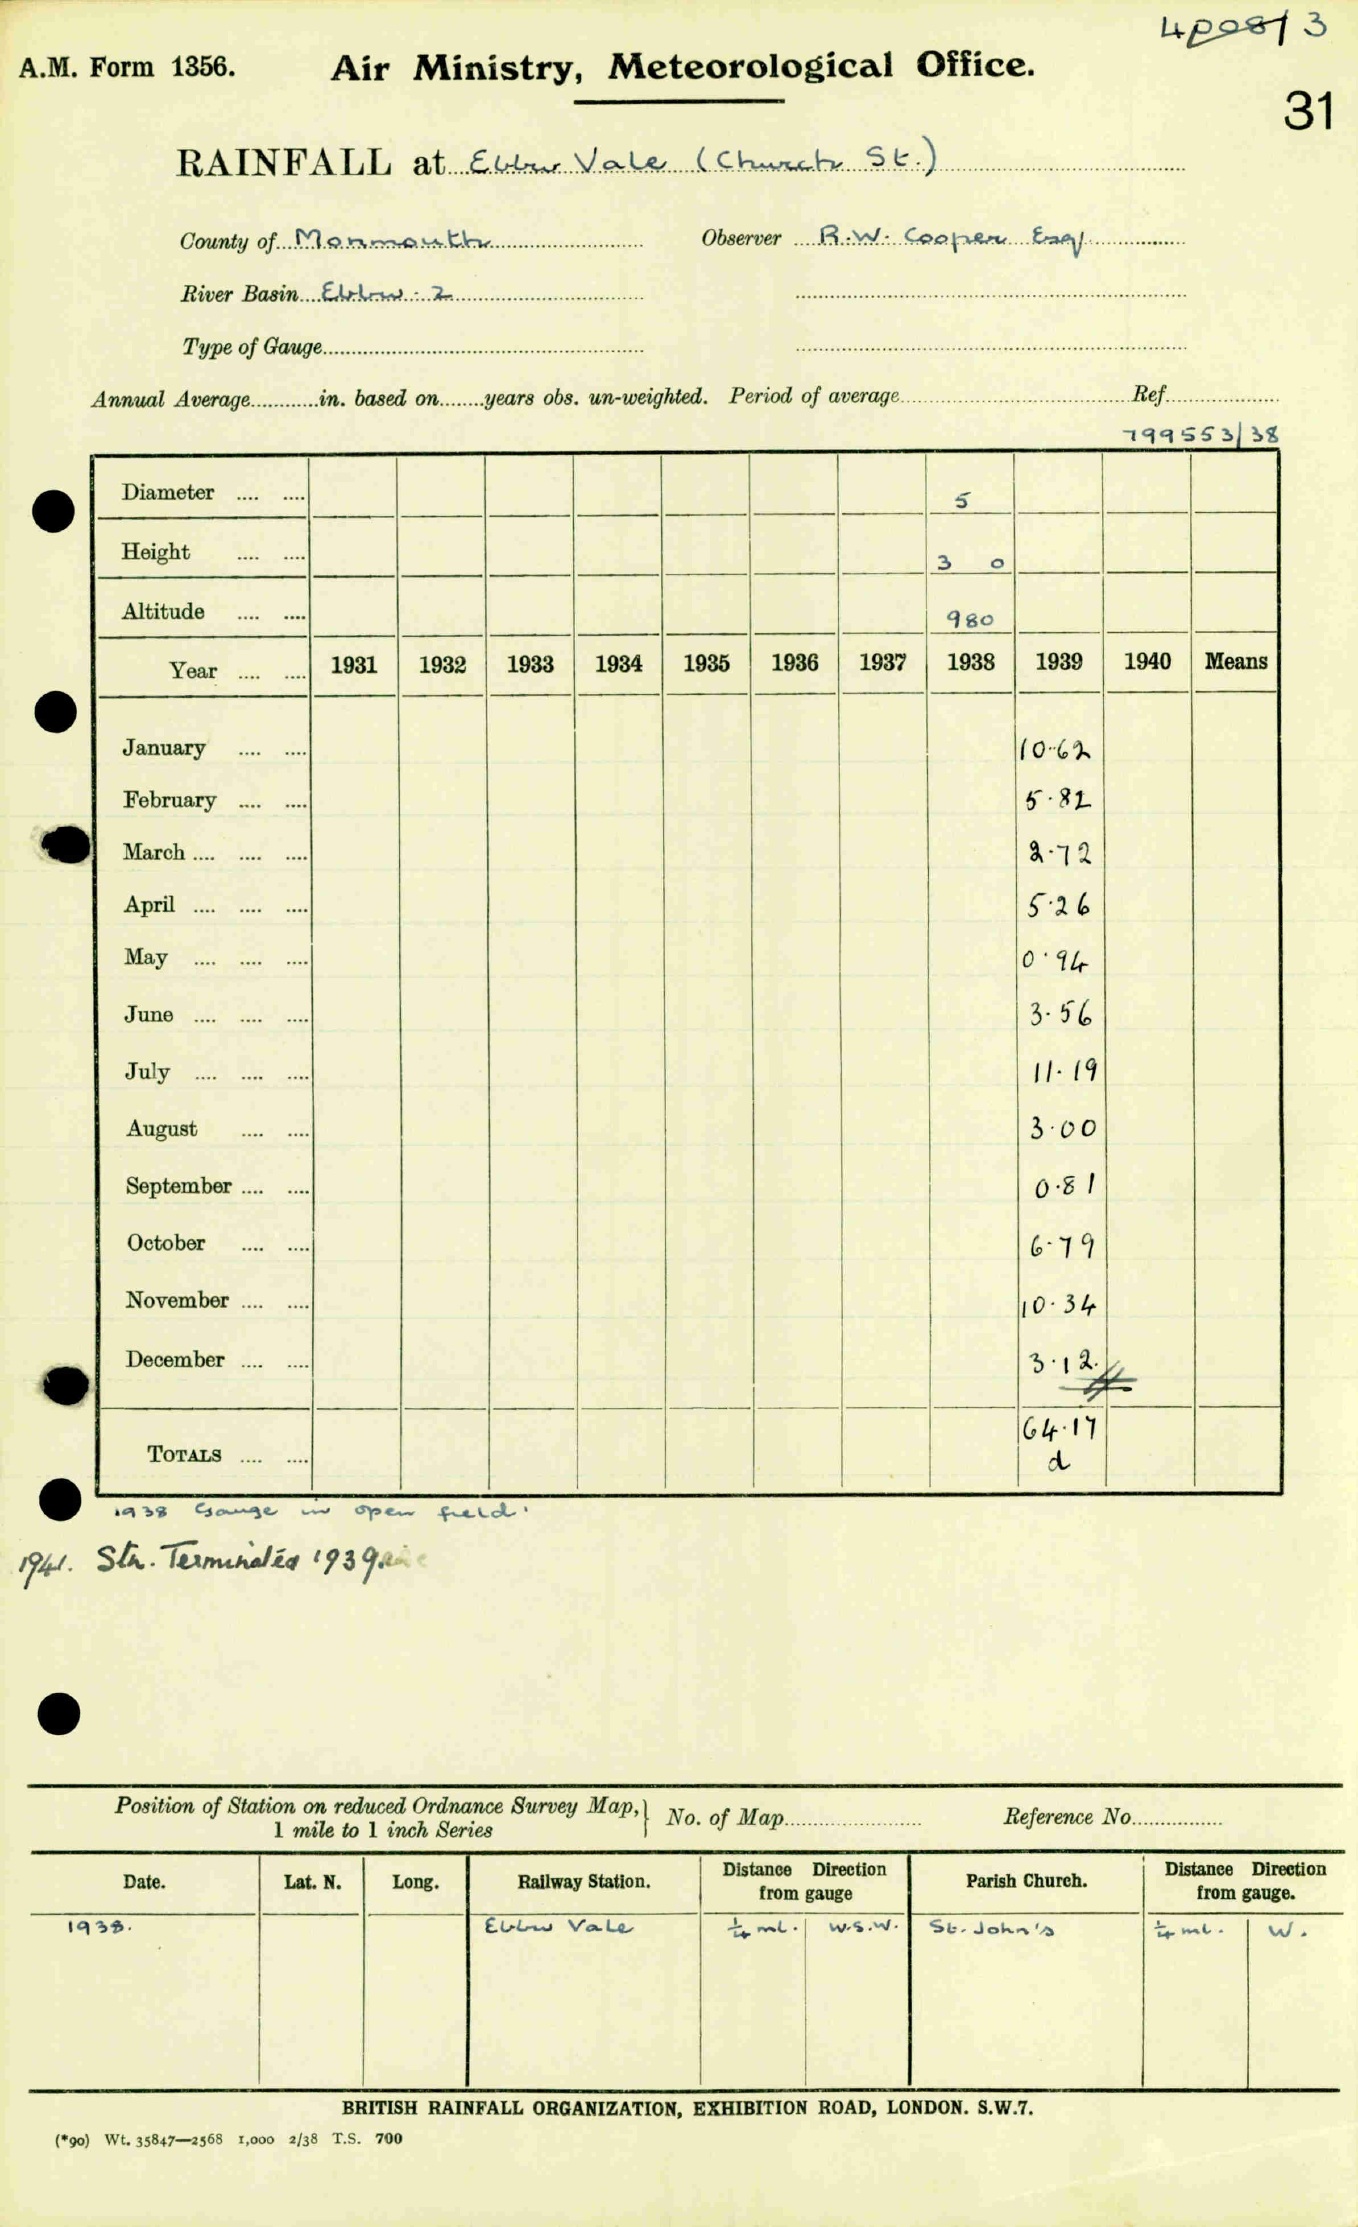 4p08/3
A.M. Form 1356. Air Ministry, Meteorological Office.
31
RAINFALL at Ebbw Vale (Church St.)
County of Monmouth Observer R.W. Cooper Esq.
River Basin Ebbw - 2
Type of Gauge
Annual Average in. based on years obs. un-weighted. Period of average Ref.
799553/38
Diameter 5
Height 3 0
Altitude 980
Year 1931 1932 1933 1934 1935 1936 1937 1938 1939 1940 Means
January 10.62
February 5.82
March 2.72
April 5.26
May 0.94
June 3.56
July 11.19
August 3.00
September 0.81
October 6.79
November 10.34
December 3.12
TOTALS 64.17
d
1938 Gauge in open field.
1941. Stn. Terminated 1939.
Position of Station on reduced Ordnance Survey Map, 1 mile to 1 inch Series } No. of Map Reference No.
Date. Lat. N. Long. Railway Station. Distance Direction from gauge Parish Church. Distance Direction from gauge.
1938. Ebbw Vale ¼ ml. W.S.W. St. John's ¼ ml. W.
BRITISH RAINFALL ORGANIZATION, EXHIBITION ROAD, LONDON. S.W.7.
(*90) Wt. 35847—2568 1,000 2/38 T.S. 700